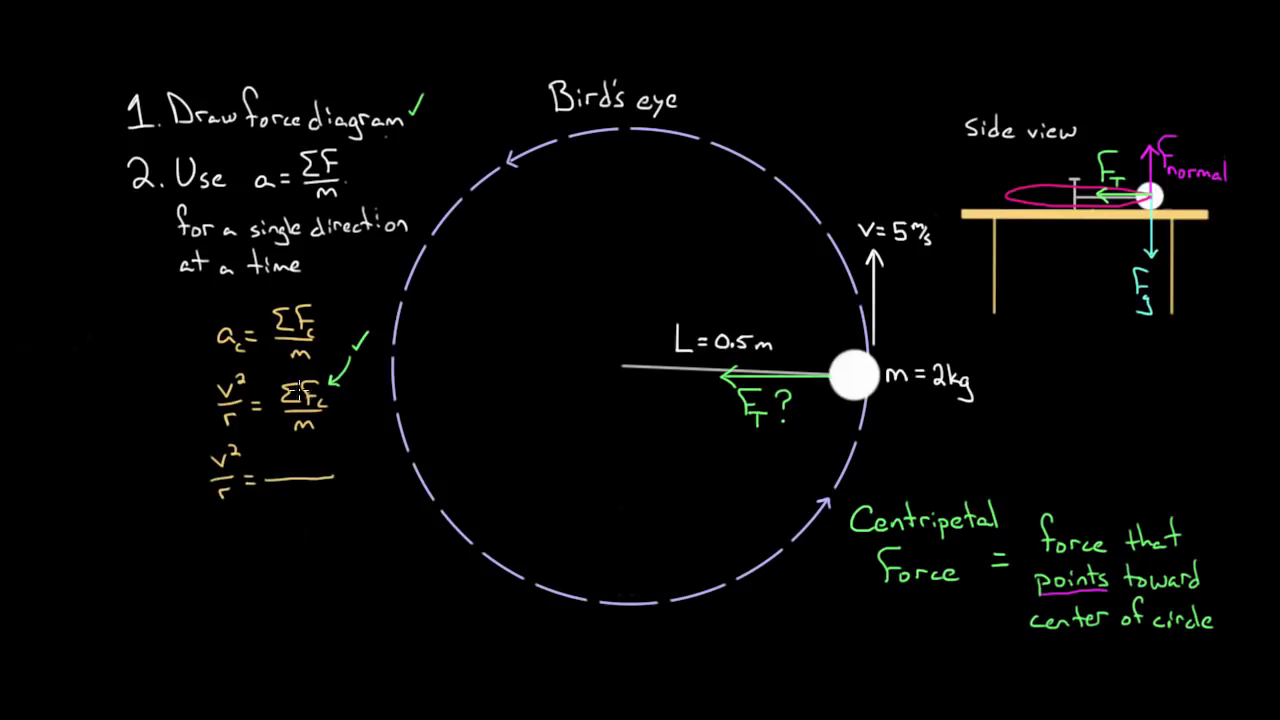 1. Draw force diagram ✓
2. Use a = ΣF/m
for a single direction
at a time
a_c = ΣF_c/m
v²/r = ΣF_c/m ✓
v²/r =
Bird's eye
L = 0.5m
F_T ?
v = 5 m/s
m = 2kg
Side view
F_T
F_normal
F_g
Centripetal Force = force that points toward center of circle